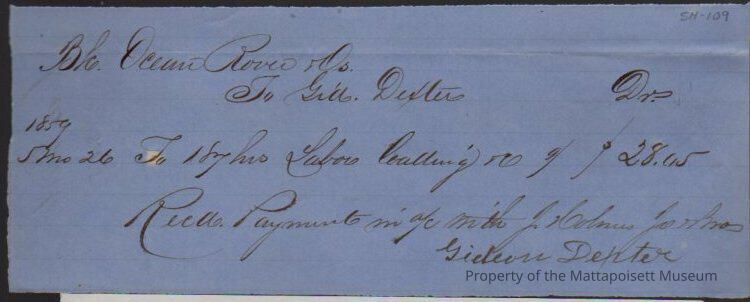 SH-109
Bk. Ocean Rover & Os.
To Gid. Dexter Dr.
1859
5 mo 26 To 187 hrs Labor Coalling &c @ $ 28.05
Recd. Payment in a/c with J. Holmes Jr & Bros
Gideon Dexter
Property of the Mattapoisett Museum